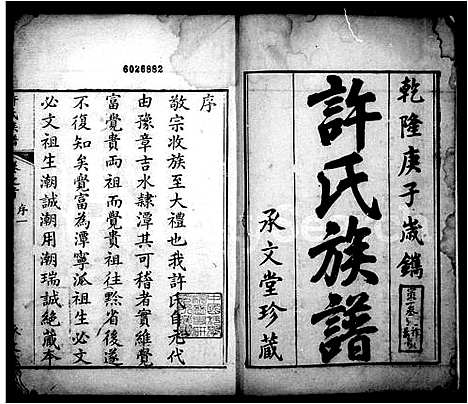 乾隆庚子歲鐫
許氏族譜
承文堂珍藏
6026882
序
敬宗收族至大禮也我許氏自元代
由豫章吉水隸潭其可稽者實維覺
富覺貴兩祖而覺貴祖往黔省後遂
不復知矣覺富為潭寧派祖生必文
必文祖生潮誠潮用潮瑞誠絶藏本
序一